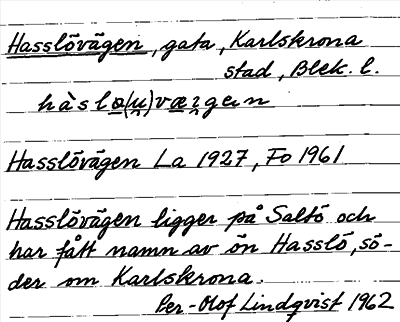 Hasslövägen, gata, Karlskrona
stad, Blek. l.
hàslo̲(u̲)væ̲i̯gɐn
Hasslövägen La 1927, Fo 1961
Hasslövägen ligger på Saltö och
har fått namn av ön Hasslö, sö-
der om Karlskrona.
Per-Olof Lindqvist 1962